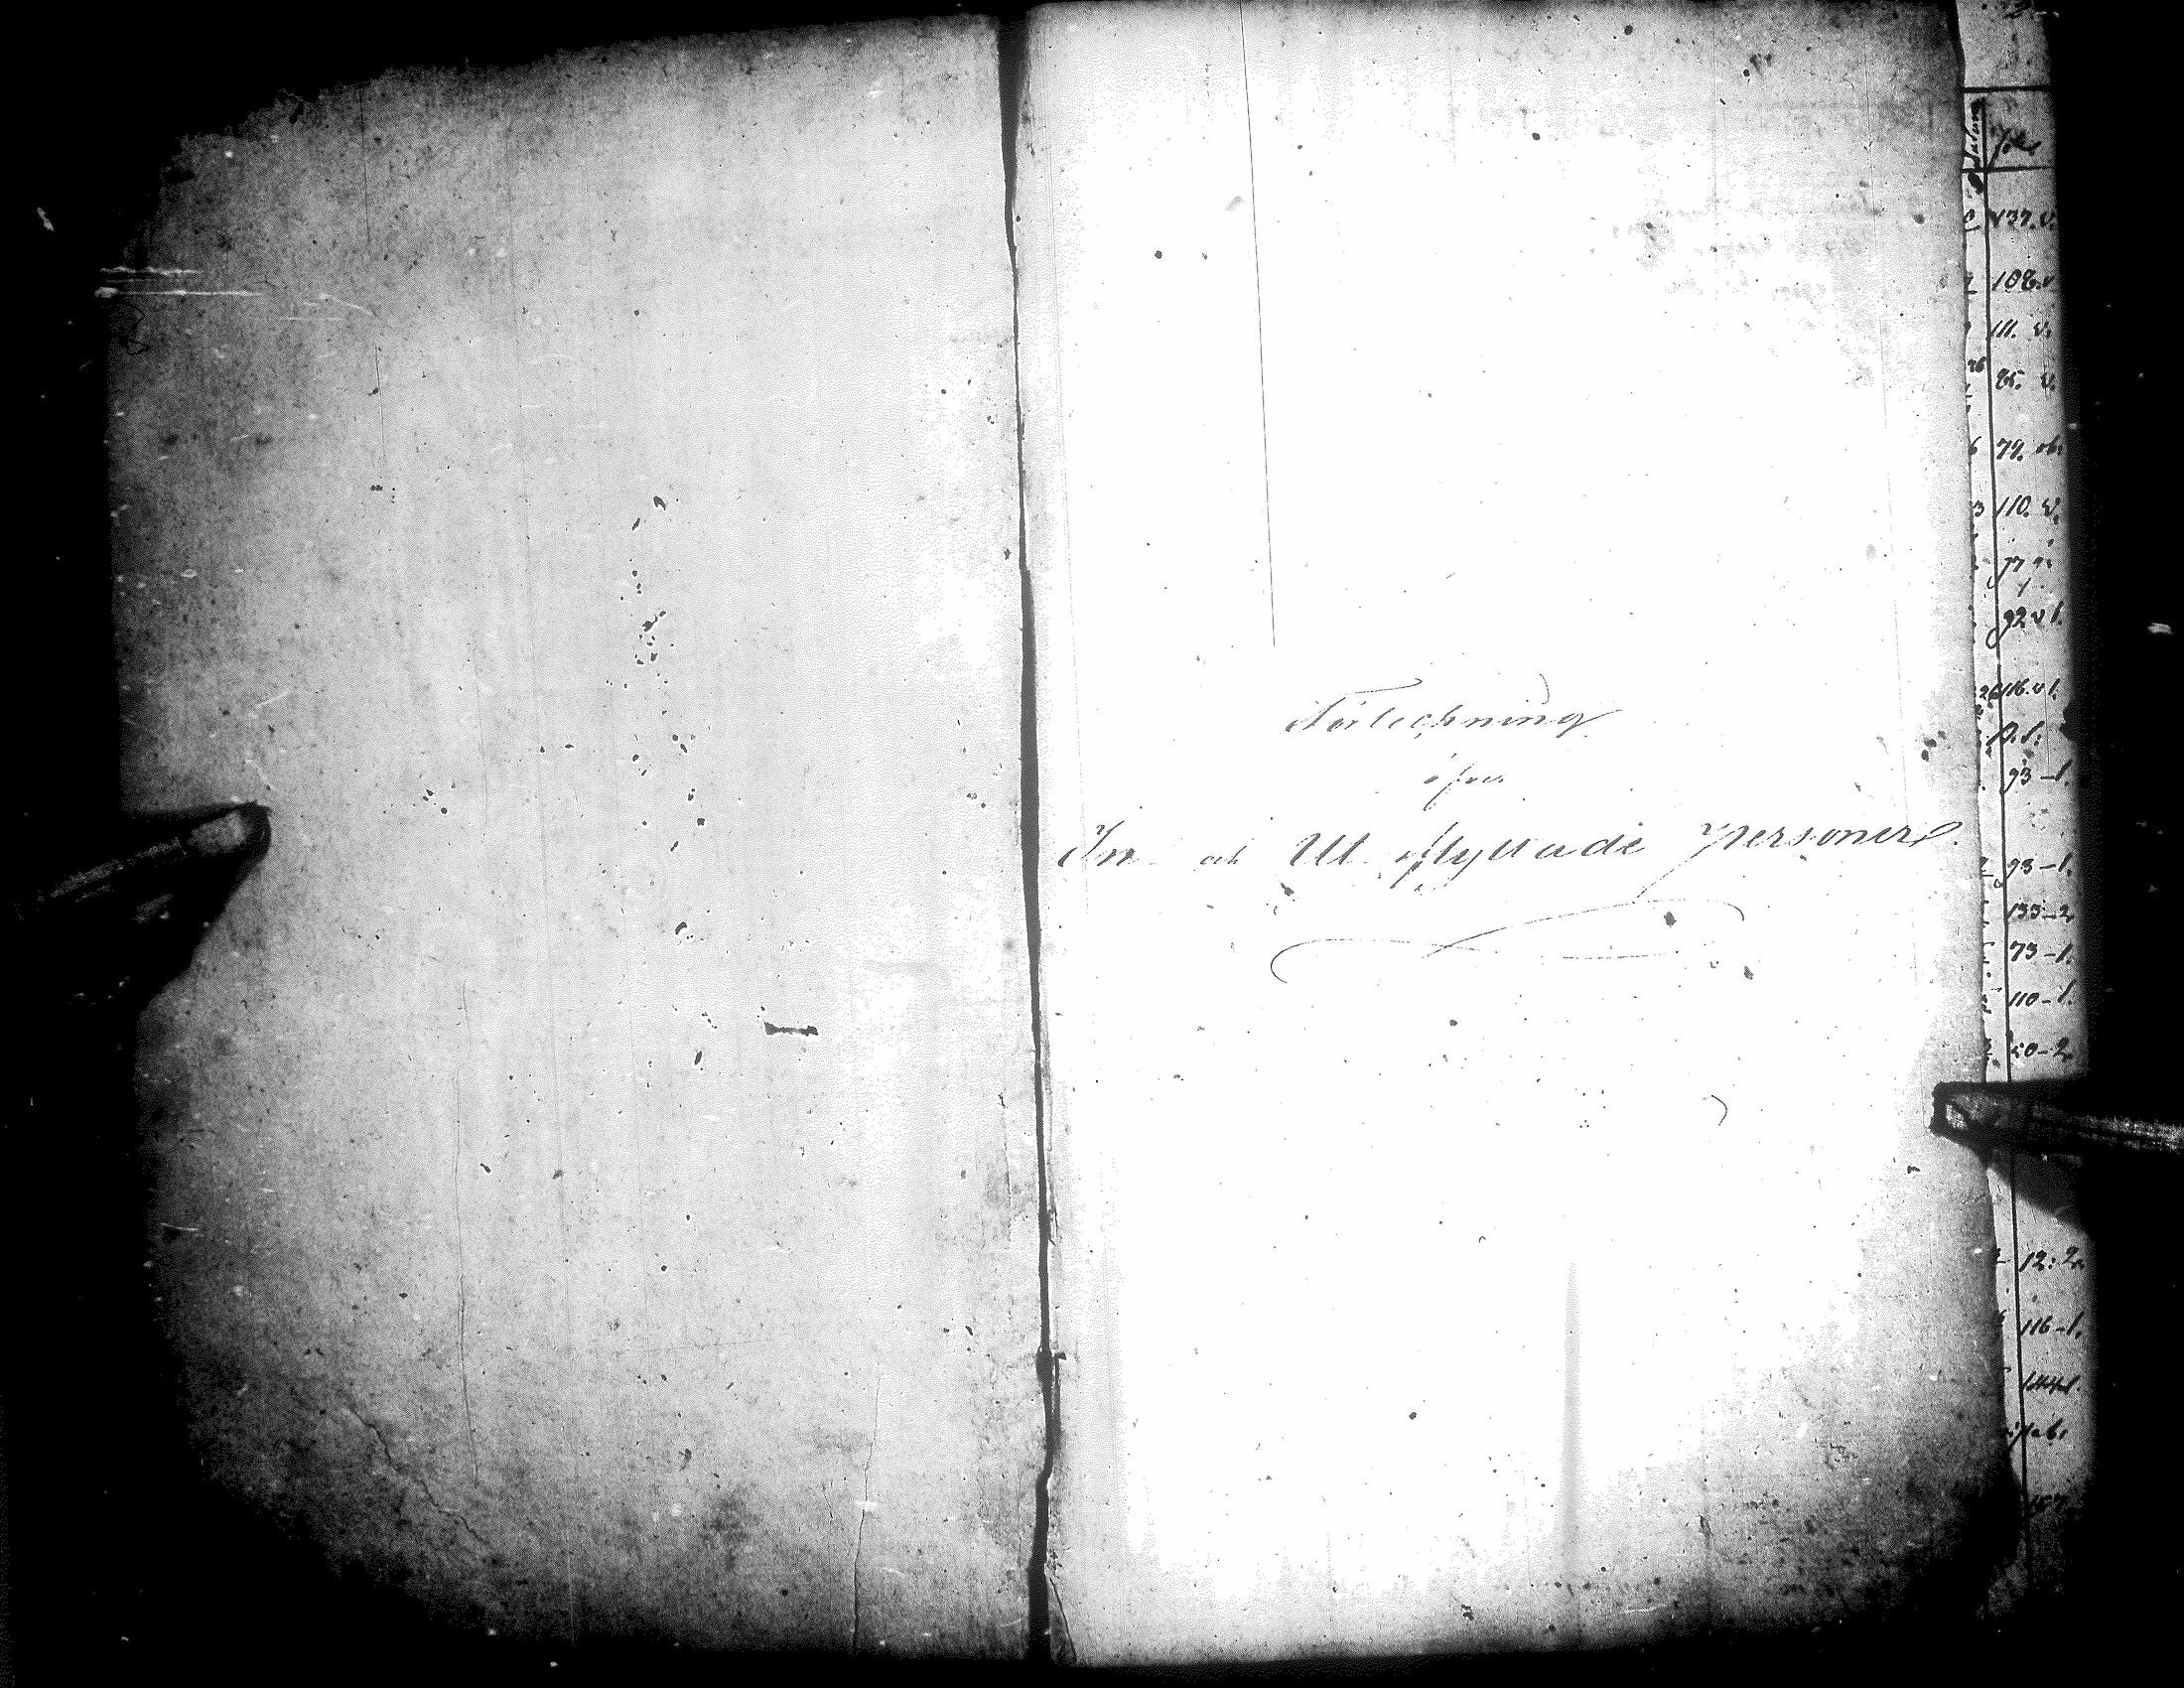 Förteckning
öfver
In och Ut flyttade personer.
Folio
137. v.
108. v
111. v.
85. v.
79.
110. v.
77
92 v 1.
116. v 1.
93 - 1.
93 - 1.
133 - 2
73 - 1.
110 - 1.
50 - 2
12: 2.
116 - 1.